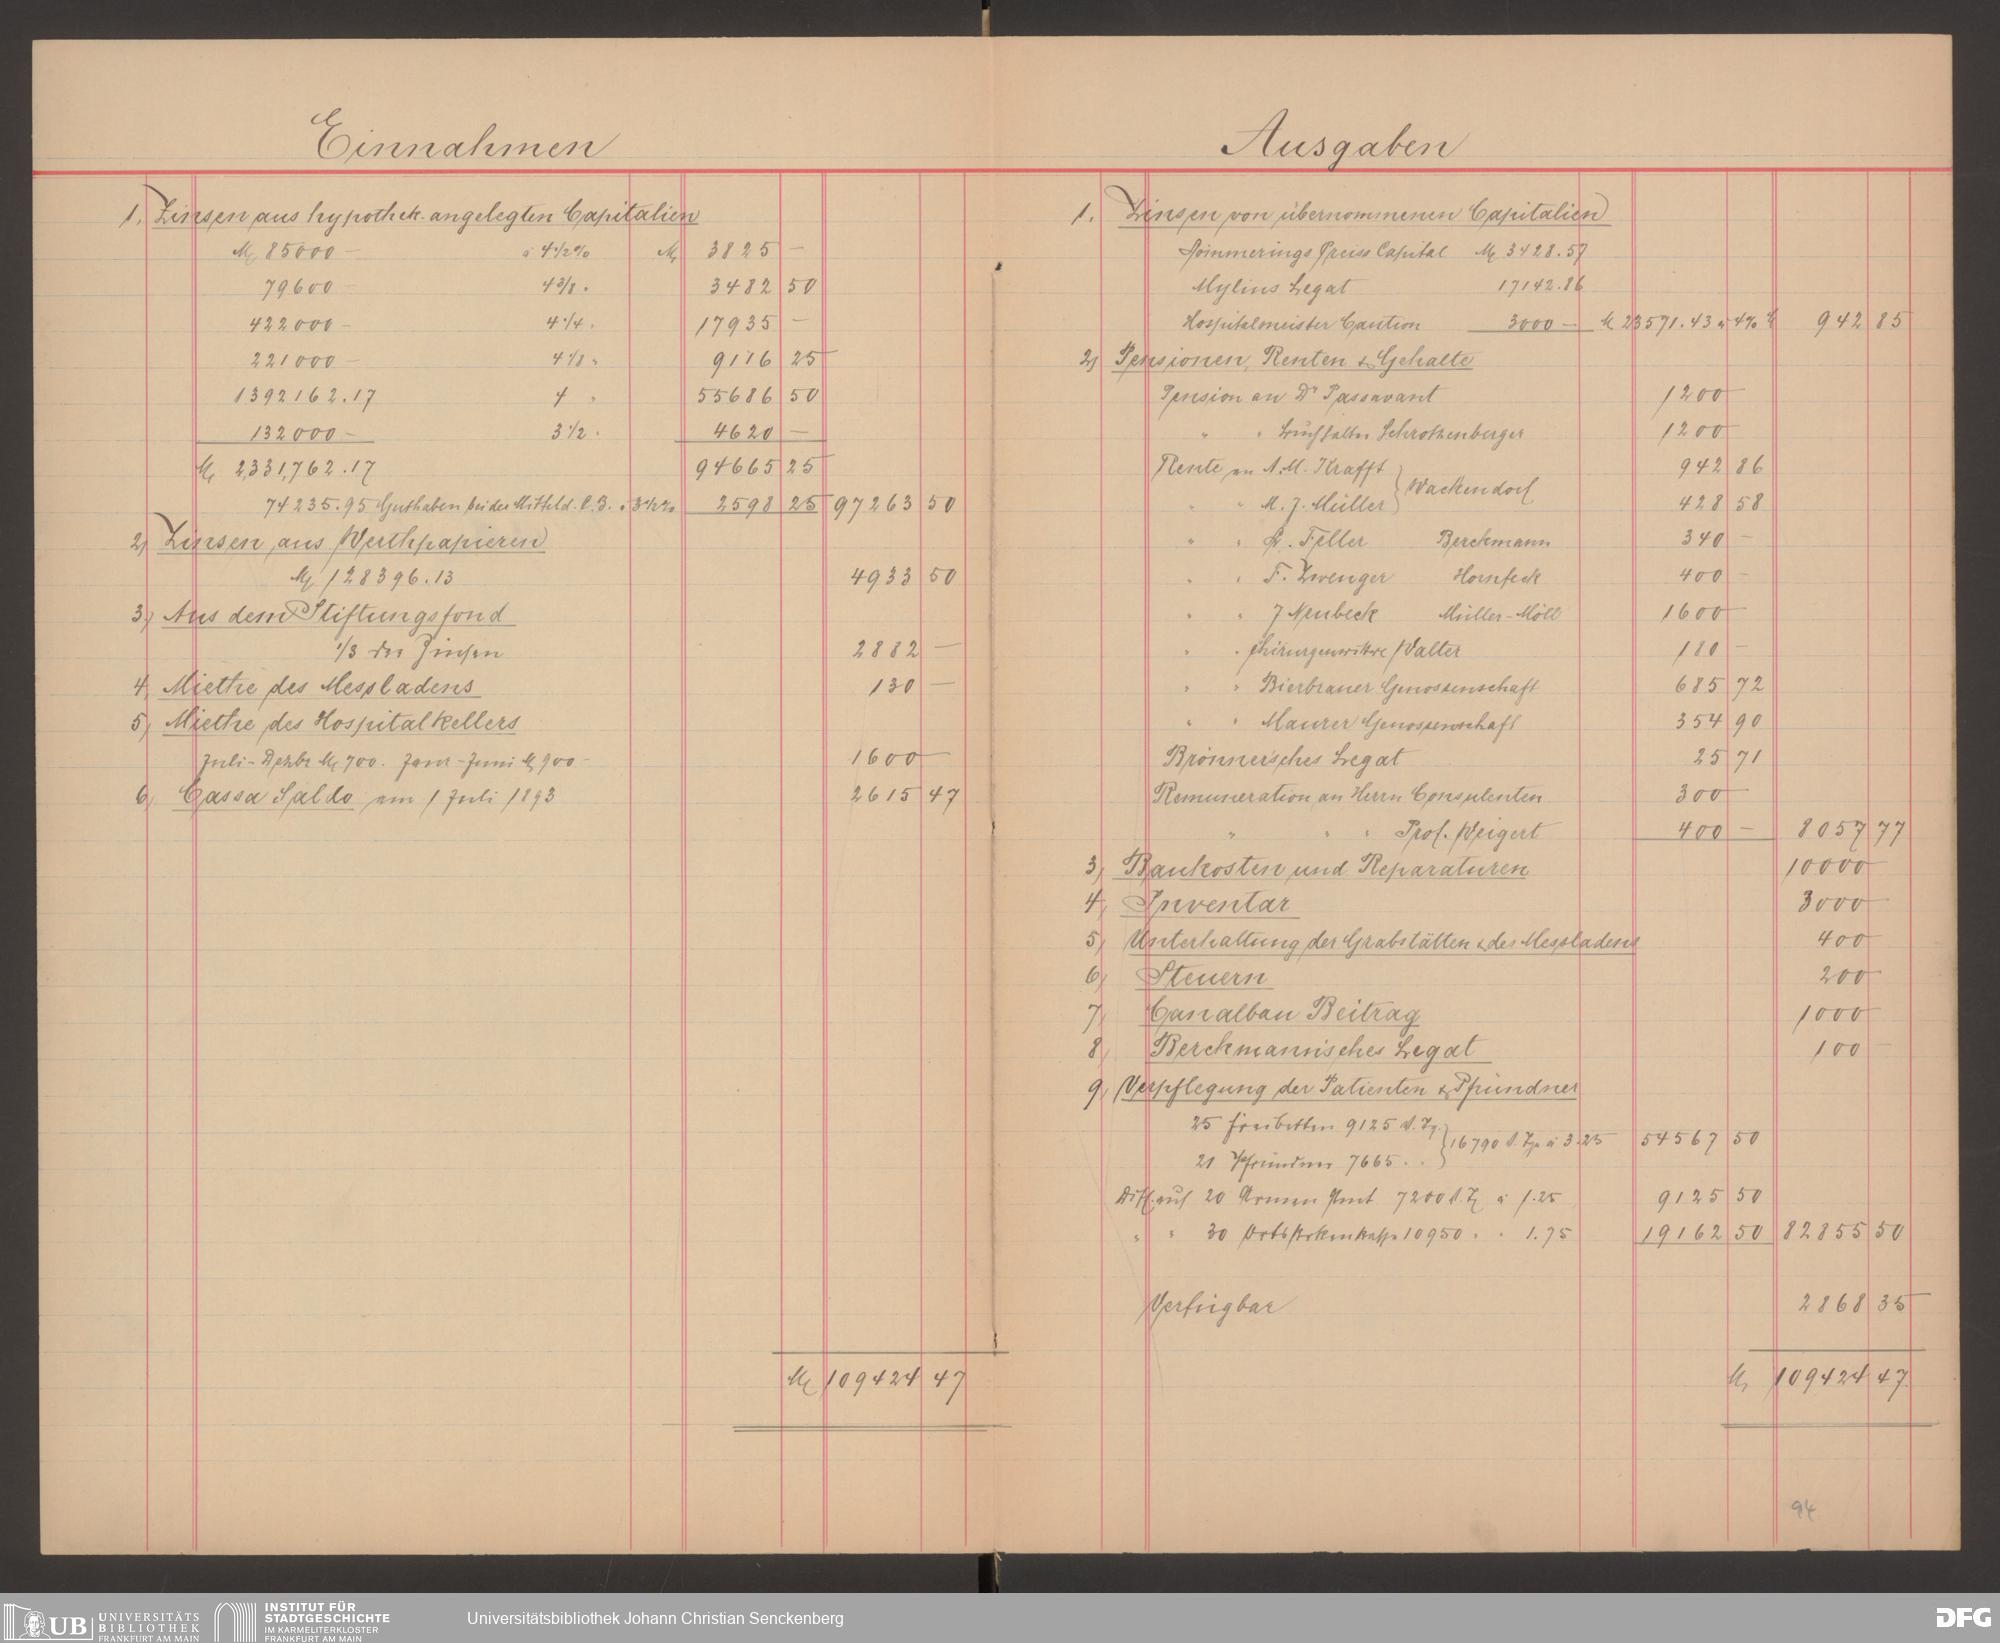 Einnahmen
1. Zinsen aus hypothek. angelegten Capitalien
M 85000 – à 4 1/2 % M 3825 –
79600 – 4 3/8 " 3482 50
422000 – 4 1/4 " 17935 –
221000 – 4 1/8 " 9116 25
1392162.17 4 " 55686 50
132000 – 3 1/2 " 4620 –
M 2,331,762.17 94665 25
74235.95 Guthaben bei der Mitteld. C. B. à 3 1/2 % 2598 25 97263 50
2) Zinsen aus Werthpapieren
M 128396.13 4933 50
3) Aus dem Stiftungsfond
1/3 der Zinsen 2882 –
4, Miethe des Messladens 130 –
5) Miethe des Hospitalkellers
Juli – Dezbr M 700. Janr – Juni M 900 – 1600 –
6) Cassa Saldo am 1 Juli 1893 2615 47
M 109424 47
Ausgaben
1. Zinsen von übernommenen Capitalien
Sömmerings Preiss Capital M 3428.57
Mylius Legat 17142.86
Hospitalmeister Caution 3000 – M 23571.43 à 4% 942 85
2) Pensionen, Renten & Gehalte
Pension an Dr Passavant 1200 –
" " Buchhalter Schrothenberger 1200 –
Rente an A. M. Krafft 942 86
" " M. J. Müller } Wackendorf 428 58
" " Feller Berckmann 340 –
" " F. Zwenger Hornfeck 400 –
" " J Neubeck Müller-Möll 1600 –
" " Chirurgenwittwe Walter 180 –
" " Bierbrauer Genossenschaft 685 72
" " Maurer Genossenschaft 354 90
Brönner'sches Legat 25 71
Remuneration an Herrn Consulenten 300 –
" " " Prof. Weigert 400 – 8057 77
3) Baukosten und Reparaturen 10000 –
4) Inventar 3000 –
5) Unterhaltung der Grabstätten & des Messladens 400 –
6) Steuern 200 –
7) Canalbau Beitrag 1000 –
8) Berckmann'sches Legat 100 –
9) Verpflegung der Patienten & Pfründner
25 Freibetten 9125 V. Tg.
21 Pfründner 7665 " " } 16790 V. Tge à 3.25 54567 50
Diff. auf 20 Armen Amt 7200 V. Tg à 1.25 9125 50
" " 30 Ortskrkenkasse 10950 " " 1.75 19162 50 82855 50
Verfügbar 2868 35
M 109424 47
94
UB UNIVERSITÄTS
BIBLIOTHEK
FRANKFURT AM MAIN
INSTITUT FÜR
STADTGESCHICHTE
IM KARMELITERKLOSTER
FRANKFURT AM MAIN
Universitätsbibliothek Johann Christian Senckenberg
DFG